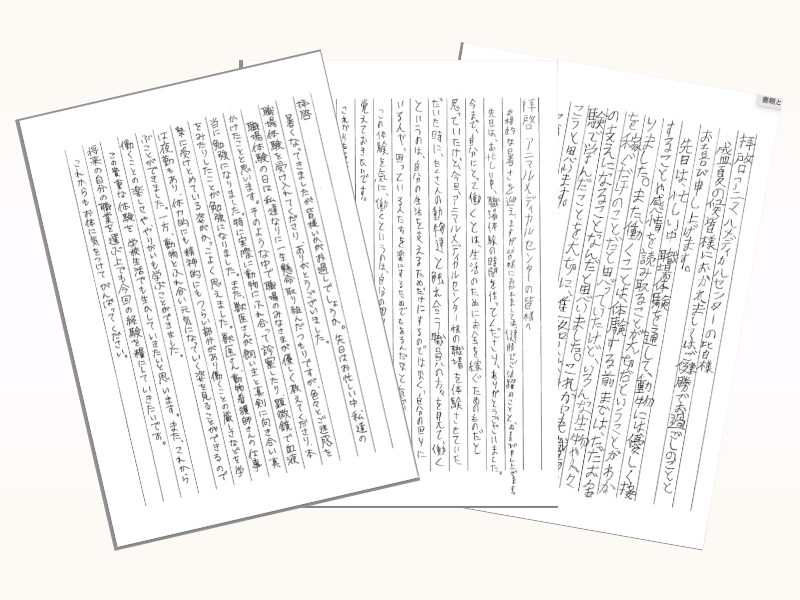 拝啓
暑くなってきましたが皆様いかがお過しでしょうか。先日はお忙しい中私達の
職場体験を受け入れてくださり、ありがとうございました。
職場体験の日は私達なりに一生懸命取り組んだつもりですが色々とご迷惑を
かけたことと思います。そのようななかで職場のみなさまが優しく教えてくださり、本
当に勉強になりました。特に実際に動物にふれ合って診察したり顕微鏡で血液
をみたりしたことが勉強になりました。また、獣医さんが飼い主と真剣に向き合い真
摯に受けとめている姿がかっこよく思えました。獣医さん、動物看護師さんの仕事
は夜勤もあり、体力的にも精神的にもつらい部分があり働くことの厳しさなどを学
ぶことができました。一方、動物とふれ合い元気になっていく姿を見ることができるので
働くことの楽しさややりがいも学ぶことができました。
この貴重な体験を学校生活でも生かしていきたいと思います。また、これから
将来の自分の職業を選ぶ上でも今回の経験を糧にしていきたいです。
これからもお体に気をつけてがんばってください。
拝啓 アニマルメディカルセンターの皆様へ
先日は、お忙しい中、職場体験の時間を作ってくださり、ありがとうございました。
今まで、自分にとって働くとは、生活のためにお金を稼ぐためのものだと
思っていたけど、今日、アニマルメディカルセンター様の職場を体験させていた
だいた時に、たくさんの動物達と触れ合う職員の方々を見て、働く
というのは、自分の生活を支えるためだけにするのではなく、自分の回りに
いる人が、困っている人たちを楽にするためでもあるんだなと
この体験を気に、働くというのは、自分の
覚えておきたいです。
これからも
拝啓 アニマルメディカルセンターの皆様
盛夏の候、皆様におかれましてはご健勝でお過ごしのことと
お喜び申し上げます。
先日は、忙しい中、職場体験を通して、動物には優しく接
することや感情を読み取ることが大切だということがわか
りました。また、働くことは、体験する前まではただお金
を稼ぐだけのことだと思っていたけど、いろんな生物や人々
の支えになることなんだと思いました。これからも
験で学んだことを大切に
こうと思います。
書類と